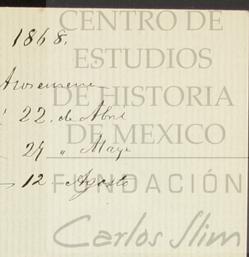 CENTRO DE
1868.
ESTUDIOS
DE HISTORIA
22. de Abril
DE MEXICO
24 " Mayo
12 Agosto
FUNDACIÓN
Carlos Slim